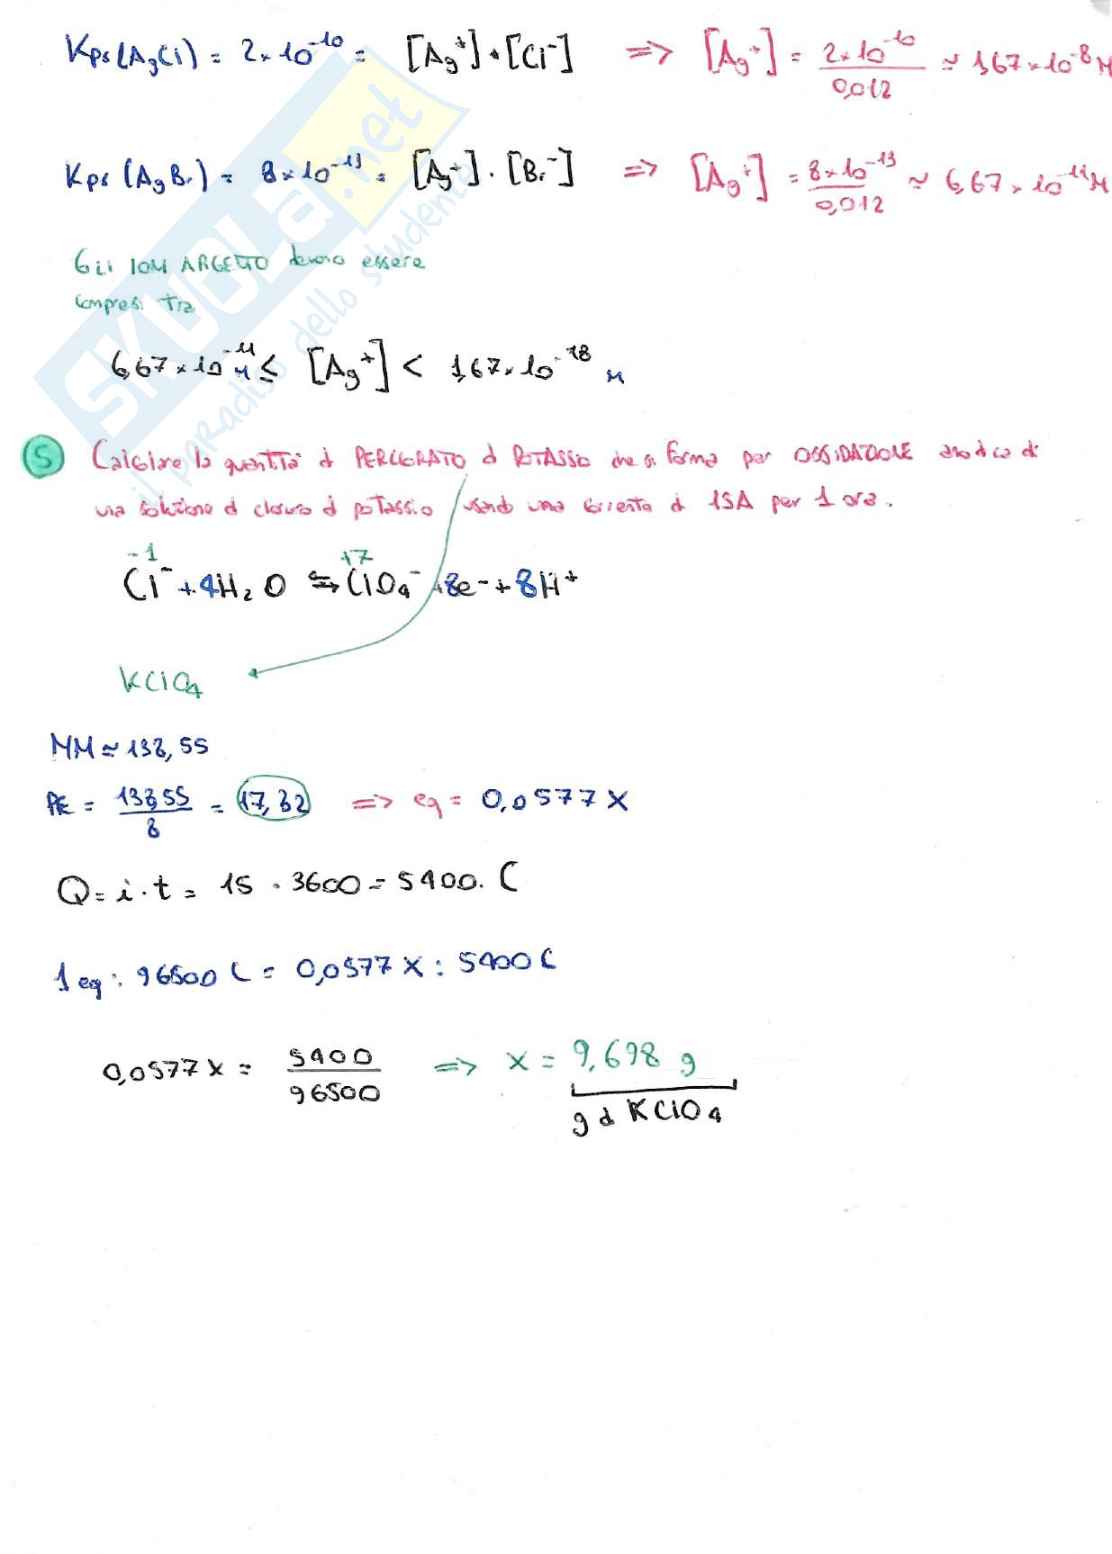 Kps(AgCl) = 2×10⁻¹⁰ = [Ag⁺]·[Cl⁻] => [Ag⁺] = 2×10⁻¹⁰ / 0,012 ≃ 1,67×10⁻⁸ M
Kps (AgBr) = 8×10⁻¹³ = [Ag⁺]·[Br⁻] => [Ag⁺] = 8×10⁻¹³ / 0,012 ≃ 6,67×10⁻¹¹ M
Gli IONI ARGENTO devono essere
compresi tra
6,67×10⁻¹¹ M ≤ [Ag⁺] < 1,67×10⁻¹8 M
5 Calcolare la quantità di PERCLORATO di POTASSIO che si forma per OSSIDAZIONE anodica di
una soluzione di cloruro di potassio usando una corrente di 15A per 1 ora.
-1 +7
Cl⁻ + 4H₂O ⇆ ClO₄⁻ + 8e⁻ + 8H⁺
KClO₄
MM ≃ 138,55
PE = 138,55 / 8 = 17,32 => eq = 0,0577 X
Q = i·t = 15 · 3600 = 5400. C
1 eq : 96500 C = 0,0577 X : 5400 C
0,0577 X = 5400 / 96500 => X = 9,698 g
g di KClO₄
SKUOLA.net
il paradiso dello studente